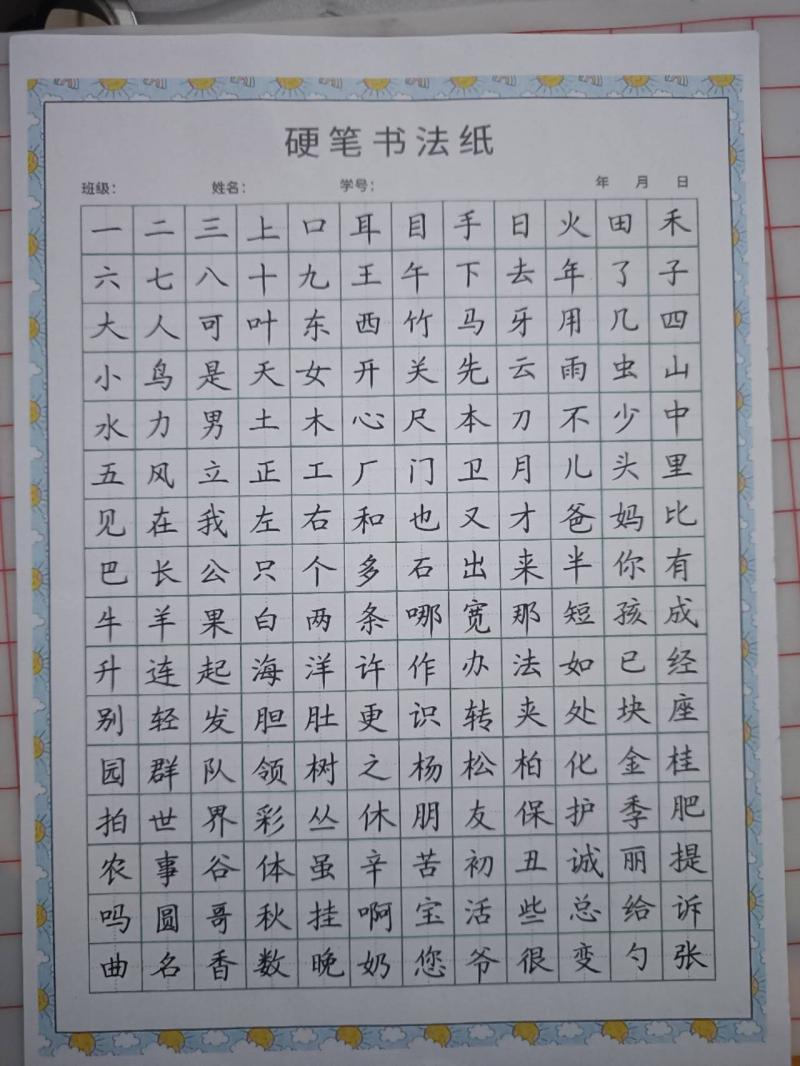 硬笔书法纸
班级: 姓名: 学号: 年 月 日
一二三上口耳目手日火田禾
六七八十九王午下去年了子
大人可叶东西竹马牙用几四
小鸟是天女开关先云雨虫山
水力男土木心尺本刀不少中
五风立正工厂门卫月儿头里
见在我左右和也又才爸妈比
巴长公只个多石出来半你有
牛羊果白两条哪宽那短孩成
升连起海洋许作办法如已经
别轻发胆肚更识转夹处块座
园群队领树之杨松柏化金桂
拍世界彩丛休朋友保护季肥
农事谷体虽辛苦初丑诚丽提
吗圆哥秋挂啊宝活些总给诉
曲名香数晚奶您爷很变勺张